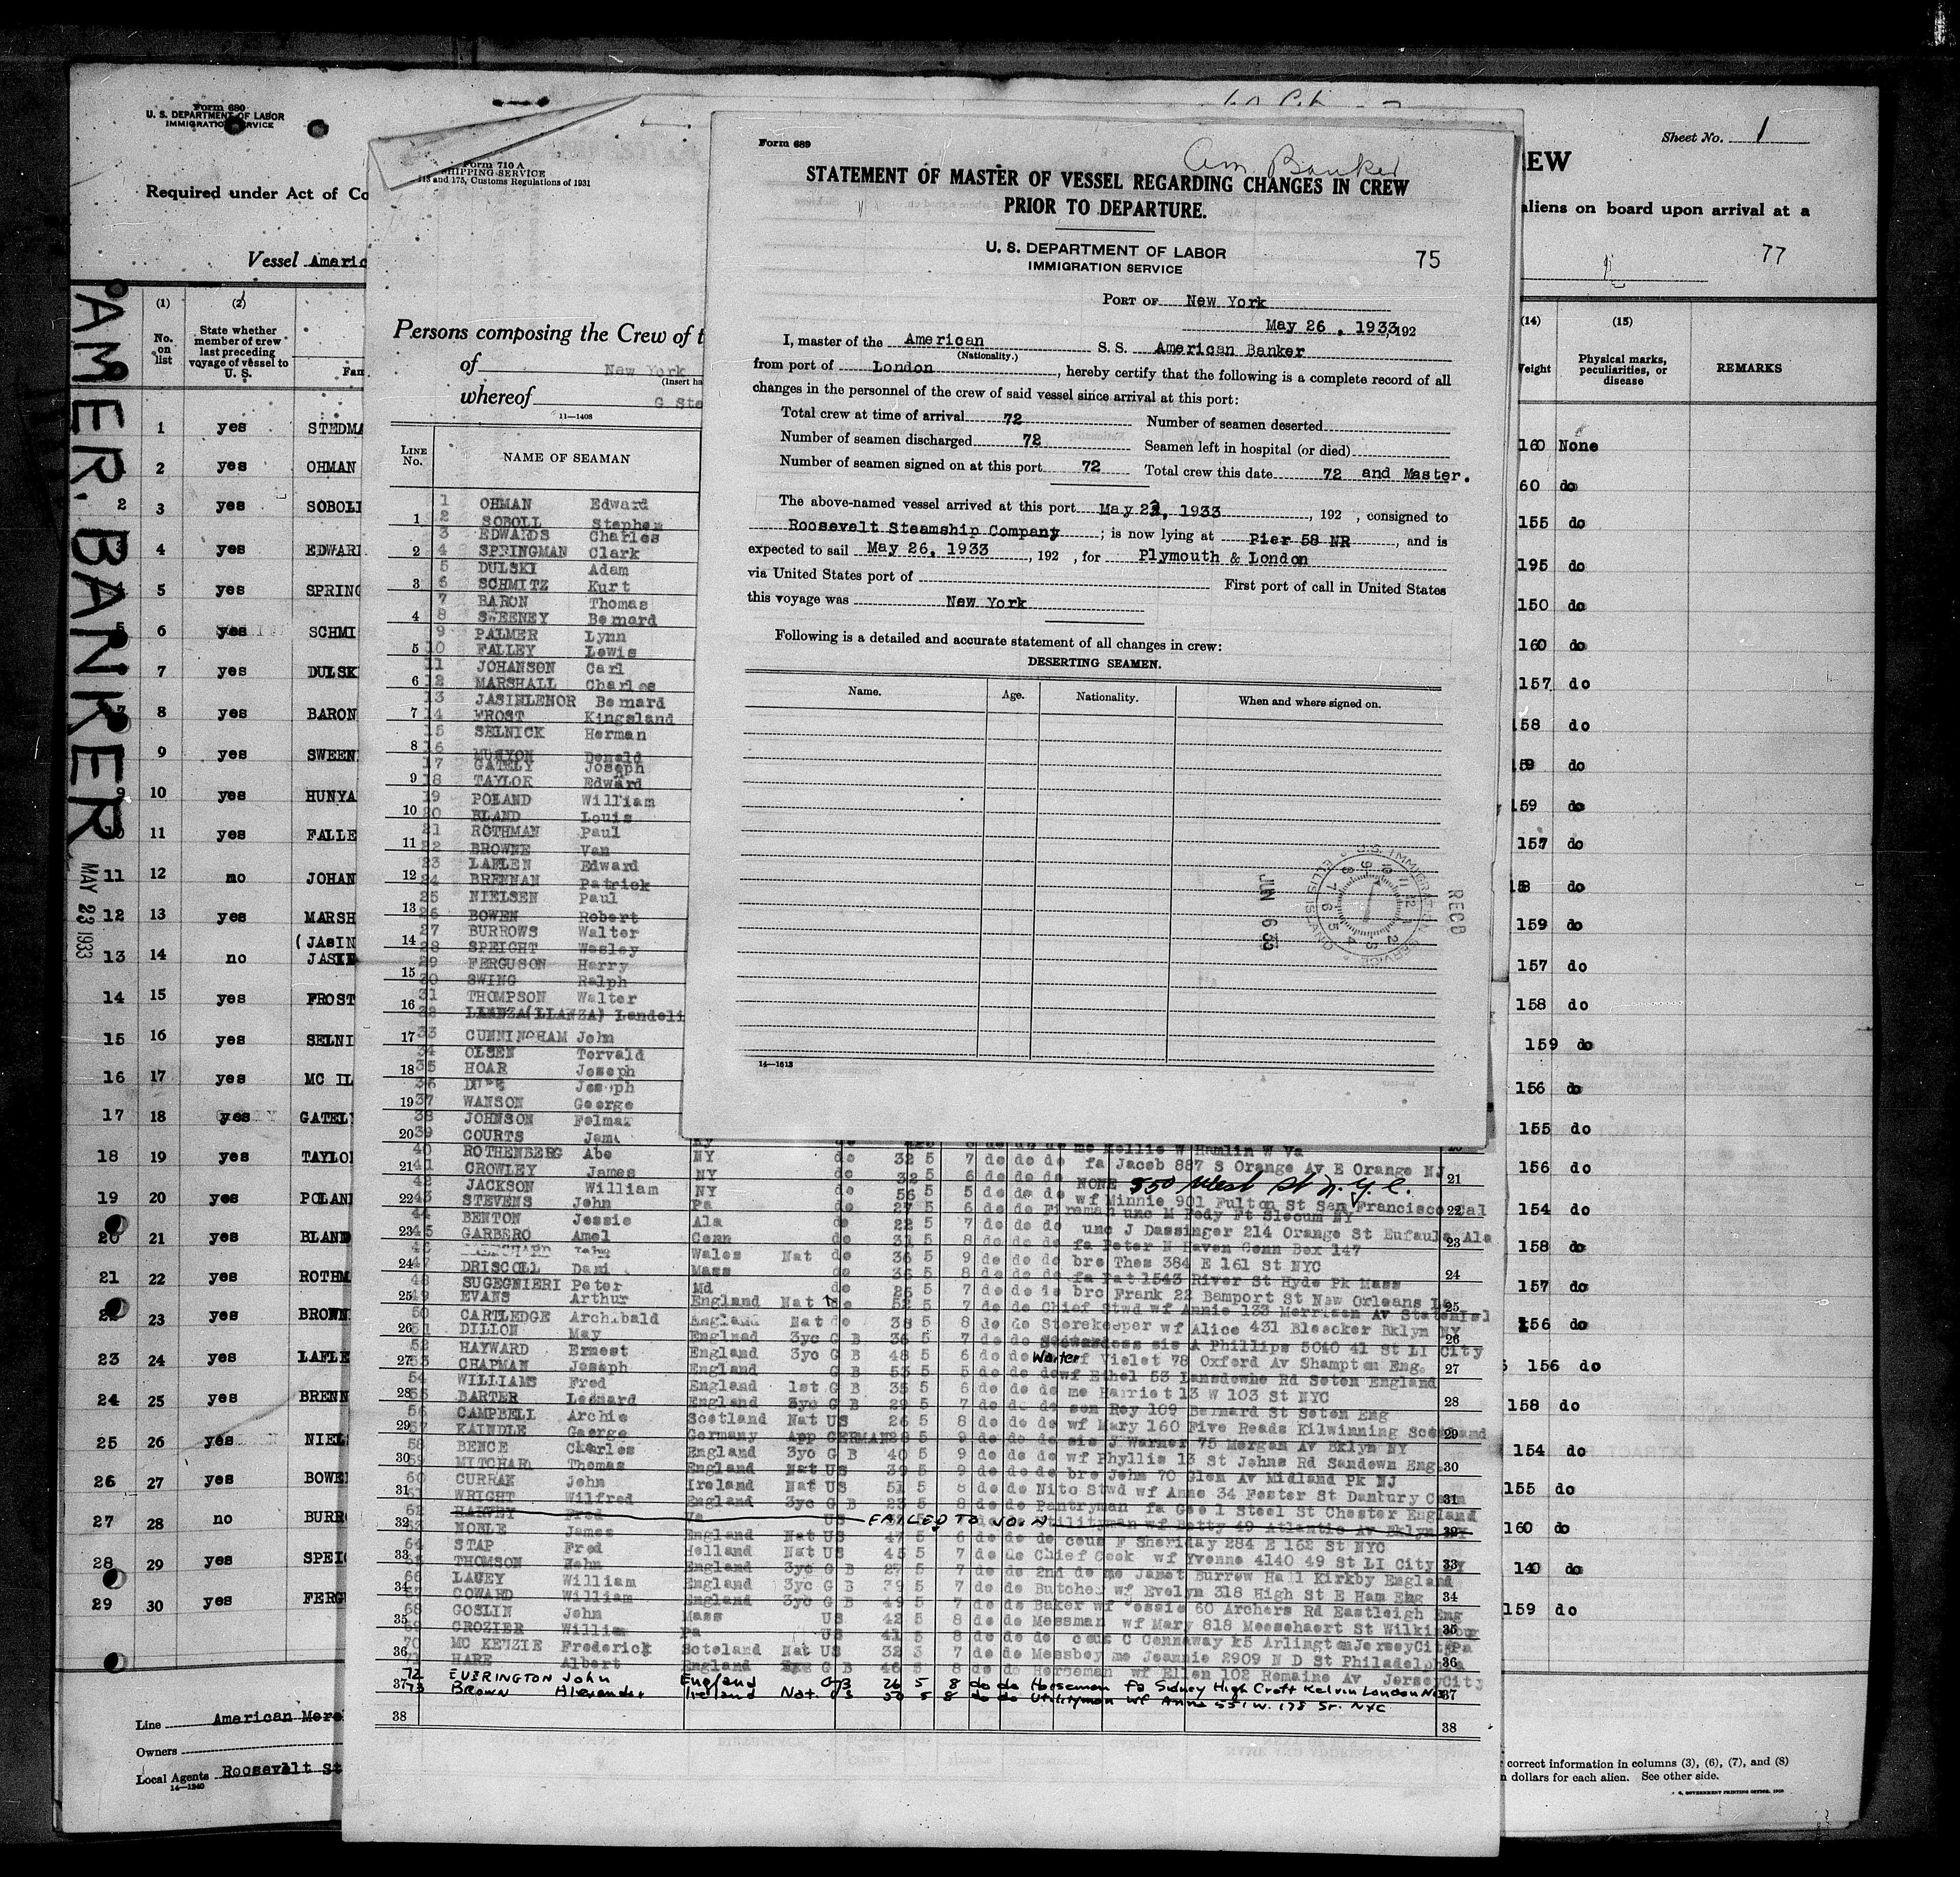 Form 680
U. S. DEPARTMENT OF LABOR
IMMIGRATION SERVICE
Required under Act of Co
Vessel Americ
AMER. BANKER
MAY 23 1933
(1) (2)
No. on list
State whether member of crew last preceding voyage of vessel to U. S.
Fam
1 yes STEDMA
2 yes OHMAN
2 3 yes SOBOLL
4 yes EDWARD
5 yes SPRING
5 6 yes SCHMI
7 yes DULSK
8 yes BARON
9 yes SWEEN
9 10 yes HUNYA
11 yes FALLE
11 12 no JOHAN
12 13 yes MARSH
(JASIN
13 14 no
14 15 yes FROST
15 16 yes SELNI
16 17 yes MC IL
17 18 yes GATEL
18 19 yes TAYLO
19 20 yes POLAN
20 21 yes BLAND
21 22 yes ROTHM
22 23 yes BROWN
23 24 yes LAFLE
24 25 yes BRENN
25 26 yes NIEL
26 27 yes BOWE
27 28 no BURR
28 29 yes SPEI
29 30 yes FERG
Line American Mer
Owners
Local Agents Roosevelt St
14—1240
Form 710 A
SHIPPING SERVICE
113 and 175, Customs Regulations of 1931
Persons composing the Crew of t
of New York
(Insert ha
whereof G Ste
11—1408
LINE No.
NAME OF SEAMAN
1 OHMAN Edward
2 SOBOLL Stephen
3 EDWARDS Charles
4 SPRINGMAN Clark
5 DULSKI Adam
6 SCHMITZ Kurt
7 BARON Thomas
8 SWEENEY Bernard
9 PALMER Lynn
10 FALLEY Lewis
11 JOHANSON Carl
12 MARSHALL Charles
13 JASINLENOR Bernard
14 FROST Kingsland
15 SELNICK Herman
16 MUNYON Donald
17 GATELY Joseph
18 TAYLOR Edward
19 POLAND William
20 BLAND Louis
21 ROTHMAN Paul
22 BROWNE Van
23 LAFLEN Edward
24 BRENNAN Patrick
25 NIELSEN Paul
26 BOWEN Robert
27 BURROWS Walter
28 SPEIGHT Wesley
29 FERGUSON Harry
30 SWING Ralph
31 THOMPSON Walter
32 LLANZA(LLANZA) Landeli
33 CUNNINGHAM John
34 OLSEN Torvald
35 HOAR Joseph
36 Joseph
37 WANSON George
38 JOHNSON Felmar
39 COURTS Jam
me Nellie W Hamlin W Va
40 ROTHENBERG Abe NY do 32 5 7 do do do fa Jacob 887 S Orange Av E Orange NJ
41 CROWLEY James NY do 32 5 6 do do do NONE 550 West St N.Y.C.
42 JACKSON William NY do 56 5 5 do do do wf Minnie 901 Fulton St San Francisco Cal
43 STEVENS John Pa do 27 5 6 do do Fireman unc M Pedy Ft Slocum NY
44 BENTON Jessie Ala do 22 5 7 do do do unc J Dassinger 214 Orange St Eufaula Ala
45 GARBERO Amel Conn do 31 5 8 do do do fa Peter N Haven Conn Box 147
46 John Wales Nat do 36 5 9 do do do bro Thos 384 E 161 St NYC
47 DRISCOLL Dani Mass do 36 5 8 do do do fa Pat 1543 River St Hyde Pk Mass
48 SUGEGNIERI Peter Md do 26 5 7 do do do bro Frank 22 Bamport St New Orleans La
49 EVANS Arthur England Nat do 52 5 7 do do Chief Stwd wf Annie 133 Merrison Av StatenIsl
50 CARTLEDGE Archibald England Nat do 38 5 8 do do Storekeeper wf Alice 431 Bleecker Bklyn NY
51 DILLON May England 3yc G B 36 5 7 do do Stewardess sis A Phillips 5040 41 St LI City
52 HAYWARD Ernest England 3yc G B 48 5 6 do do Waiter wf Violet 78 Oxford Av Shampton Eng.
53 CHAPMAN Joseph England G B 53 5 5 do do do wf Ethel 53 Lansdowne Rd Seton England
54 WILLIAMS Fred England 1st G B 35 5 6 do do do me Harriet 13 W 103 St NYC
55 BARTER Leonard England 3yc G B 29 5 7 do do do son Roy 109 Bernard St Soton Eng
56 CAMPBELL Archie Scotland Nat US 26 5 8 do do do wf Mary 160 Five Roads Kilwinning Scotland
57 KAINDLE George Germany App GERMAN 28 5 9 do do do sis J Warner 75 Morgan Av Bklyn NY
58 BENCE Charles England 3yc G B 40 5 9 do do do wf Phyllis 13 St Johns Rd Sandown Eng
59 MITCHAR Thomas England Nat US 39 5 9 do do do bro John 70 Glen Av Midland Pk NJ
60 CURRAN John Ireland Nat US 51 5 8 do do Nite Stwd wf Anne 34 Foster St Danbury Conn
61 WRIGHT Wilfred England 3yc G B 23 5 8 do do Pantryman fa Geo 1 Steel St Chester England
62 HARVEY Fred Va US FAILED TO JOIN Utilityman wf Betty 49 Atlantic Av Bklyn NY
63 NOBLE James England Nat US 47 5 6 do do do cous F Sheriday 284 E 162 St NYC
64 STAP Fred Holland Nat US 45 5 7 do do Chief Cook wf Yvonne 4140 49 St LI City NY
65 THOMSON England 3yc G B 27 5 7 do do 2nd do me Janet Burrow Hall Kirkby England
66 LACEY William England 3yc G B 39 5 7 do do Butcher wf Evelyn 318 High St E Ham Eng
67 COWARD William England 3yc G B 49 5 7 do do Baker wf Jessie 60 Archers Rd Eastleigh Eng
68 GOSLIN John Mass US 42 5 8 do do Messman wf Mary 818 Meesehaert St Wilkinsbur
69 CROZIER William Pa US 41 5 8 do do do cous C Connaway k5 Arlington JerseyCity
70 MC KENZIE Frederick Scotland Nat US 32 5 7 do do Messboy me Jeannie 2909 N D St Philadelphia
71 HARE Albert England G B 46 5 8 do do Horseman wf Ellen 102 Romaine Av JerseyCity
72 EVERINGTON John England GB 26 5 8 do do Horseman Fa Sidney High Croft Kelvin London
73 BROWN Alexander Ireland Nat. US 50 5 8 do do Utilityman wf Anna 551 W. 178 St. NYC
38 38
Form 689
Am Banker
STATEMENT OF MASTER OF VESSEL REGARDING CHANGES IN CREW
PRIOR TO DEPARTURE.
U. S. DEPARTMENT OF LABOR
IMMIGRATION SERVICE
75
PORT OF New York
May 26, 1933, 192
I, master of the American S. S. American Banker
(Nationality.)
from port of London, hereby certify that the following is a complete record of all
changes in the personnel of the crew of said vessel since arrival at this port:
Total crew at time of arrival 72 Number of seamen deserted
Number of seamen discharged 72 Seamen left in hospital (or died)
Number of seamen signed on at this port 72 Total crew this date 72 and Master.
The above-named vessel arrived at this port May 22, 1933, 192 , consigned to
Roosevelt Steamship Company; is now lying at Pier 58 NR, and is
expected to sail May 26, 1933, 192 , for Plymouth & London
via United States port of First port of call in United States
this voyage was New York
Following is a detailed and accurate statement of all changes in crew:
DESERTING SEAMEN.
Name. Age. Nationality. When and where signed on.
JUN 6 33
U.S. IMMIGRATION SERVICE ELLIS ISLAND
RECD
14—1613
Sheet No. 1
EW
aliens on board upon arrival at a
77
(14) (15)
Weight
Physical marks, peculiarities, or disease
REMARKS
160 None
60 do
155 do
195 do
150 do
160 do
157 do
158 do
159 do
159 do
157 do
158 do
159 do
157 do
158 do
159 do
156 do
155 do
156 do
154 do
158 do
157 do
156 do
156 do
158 do
154 do
155 do
160 do
140 do
159 do
correct information in columns (3), (6), (7), and (8)
n dollars for each alien. See other side.
GOVERNMENT PRINTING OFFICE